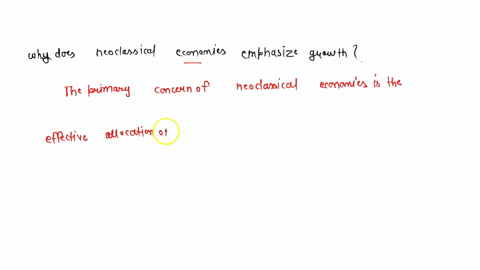 why does neoclassical economies emphasize growth?
The primary concern of neoclassical economies is the
effective allocation of